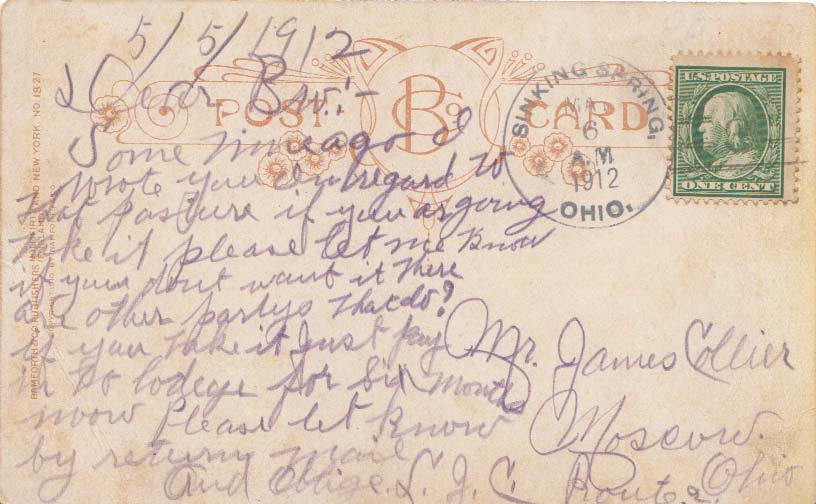 5/5/1912
Dear Bro:-
Some time ago I
wrote you in regard to
that pasture if you as going
take it please let me know
if you dont want it there
are other partys that do?
if you take it Just pay
in to lodege for Six Months
now Please let know
by return mail
And Oblige. L. J. C.
POST CARD
B&Co
SINKING SPRING,
6
A.M
1912
OHIO.
U.S. POSTAGE
ONE CENT
Mr. James Collier
Moscow.
Ohio
Route 2.
NEW YORK. NO. 1827